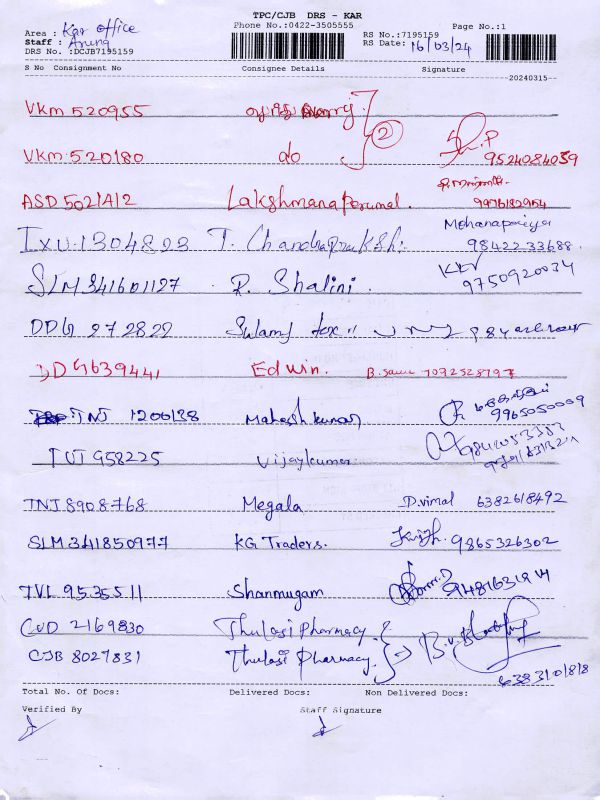 TPC/CJB DRS - KAR
Phone No.:0422-3505555 Page No.:1
Area : Kar office
Staff : Arung
DRS No. :DCJB7195159
RS No.:7195159
RS Date: 16/03/24
S No Consignment No Consignee Details Signature
20240315
VKM 520955
VKM 520180 do 2 9524084059
ASD 5021412 Lakshmanaperumal. 9976182954
IXU 1304823 T. Chandraprakash. Mohanapriya 98422 33688
SLM 341601127 R. Shalini. KKV 9750920034
DDG 272822
DDG 639441 Edwin. 7092528797
TNJ 1200138 Maheshkumar 9965050009
TUT 958225 Vijaykumar
TNJ 8908768 Megala D.vimal 6382618492
SLM 341850977 KG Traders. 9865326302
TVL 9535511 Shanmugam
CUD 2169830 Thulasi Pharmacy.
CJB 8027831 Thulasi Pharmacy.
Total No. Of Docs: Delivered Docs: Non Delivered Docs:
Verified By Staff Signature